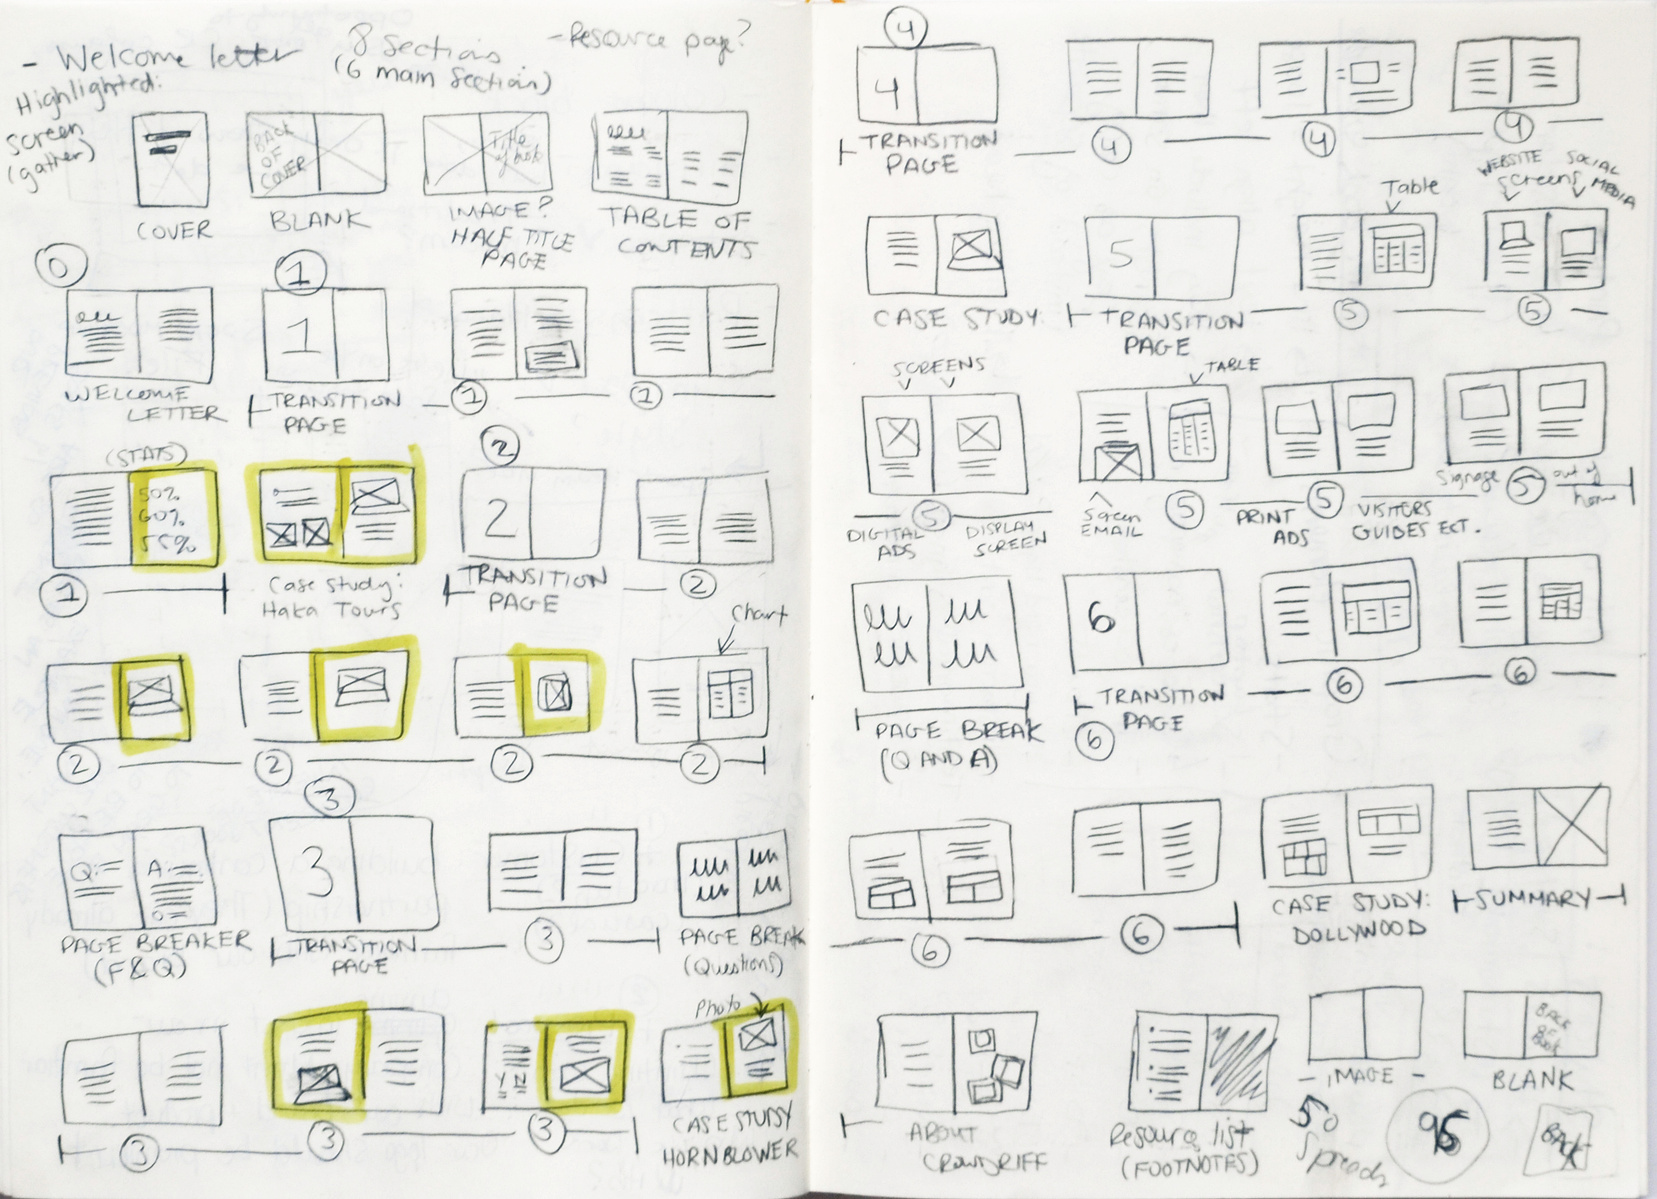 - Welcome letter
8 Sections
(6 main section)
- Resource page?
Highlighted:
screen
(gather)
BACK
OF
COVER
Title
of book
COVER
BLANK
IMAGE?
HALF TITLE
PAGE
TABLE OF
CONTENTS
0
1
1
WELCOME
LETTER
TRANSITION
PAGE
1
1
(STATS)
50%
60%
55%
2
2
1
Case study:
Haka Tours
TRANSITION
PAGE
2
Chart
2
2
2
2
3
Q:
A:
3
PAGE BREAKER
(F&Q)
TRANSITION
PAGE
3
PAGE BREAK
(Questions)
Photo
Y N
3
3
3
CASE STUDY
HORNBLOWER
4
4
TRANSITION
PAGE
4
4
4
WEBSITE
Screens
SOCIAL
MEDIA
Table
5
CASE STUDY:
TRANSITION
PAGE
5
5
SCREENS
TABLE
DIGITAL
ADS
5
DISPLAY
SCREEN
Screen
EMAIL
5
PRINT
ADS
5
VISITORS
GUIDES ECT.
Signage
5
out of
home
6
PAGE BREAK
(Q AND A)
TRANSITION
PAGE
6
6
6
6
6
CASE STUDY:
DOLLYWOOD
SUMMARY
BACK
OF
Book
ABOUT
CROWDRIFF
Resource list
(FOOTNOTES)
- IMAGE -
BLANK
50
Spreads
96
BACK